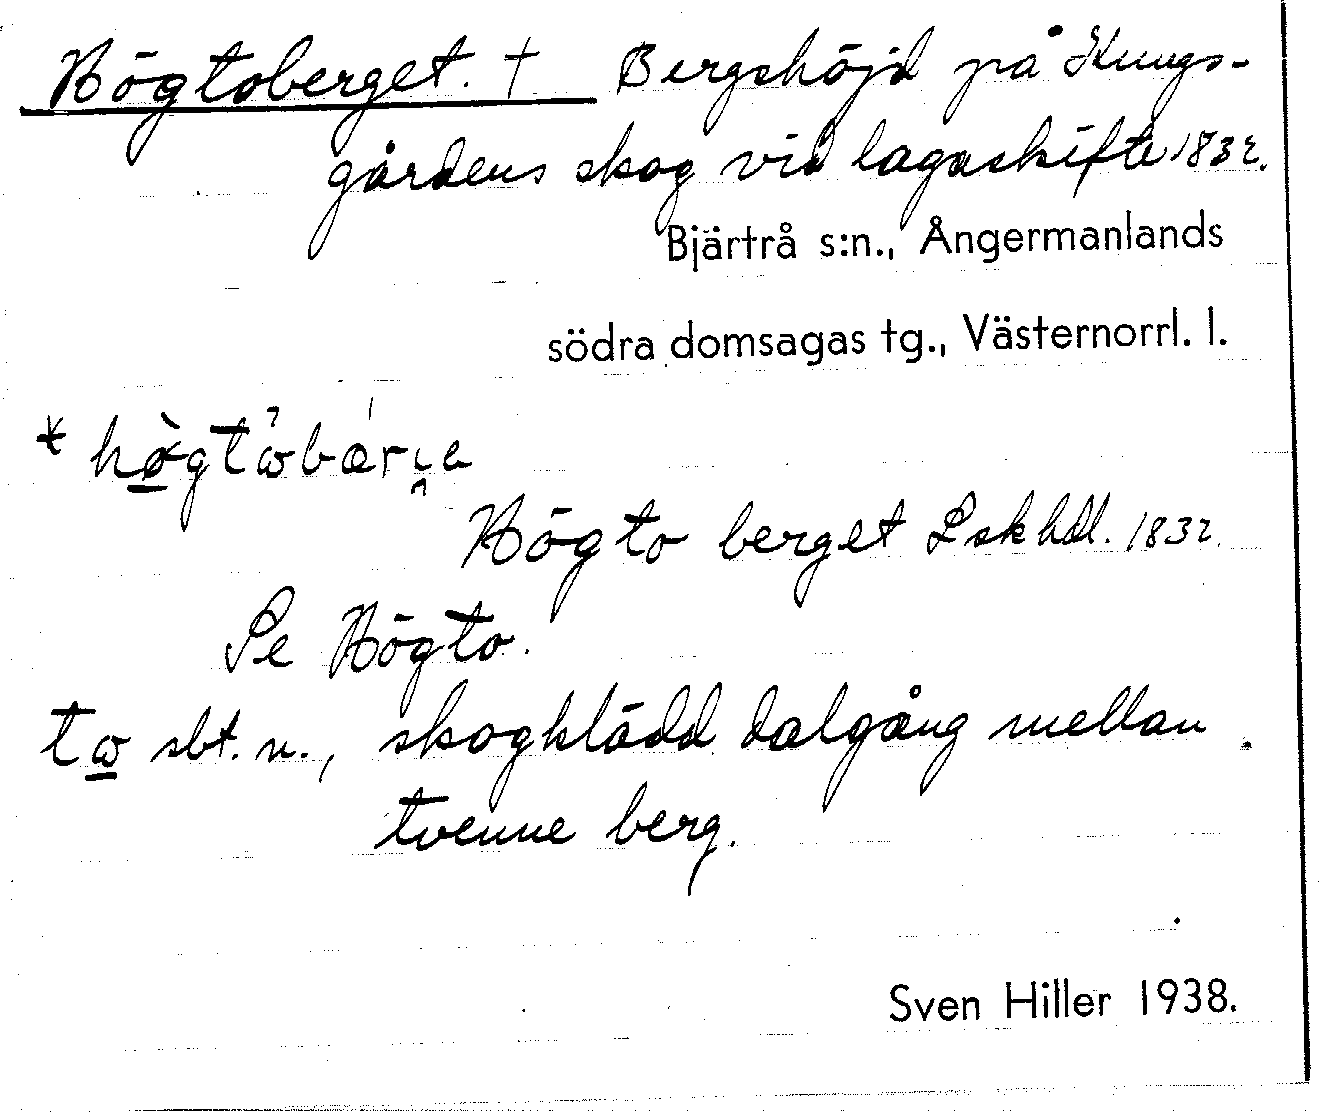 Högtoberget. † Bergshöjd på Kungs-
gårdens skog vid lagaskifte 1832.
Bjärtrå s:n., Ångermanlands
södra domsagas tg., Västernorrl. l.
Högto berget Lskhdl. 1832.
Se Högto.
tω sbt. n., skogklädd dalgång mellan
tvenne berg.
Sven Hiller 1938.